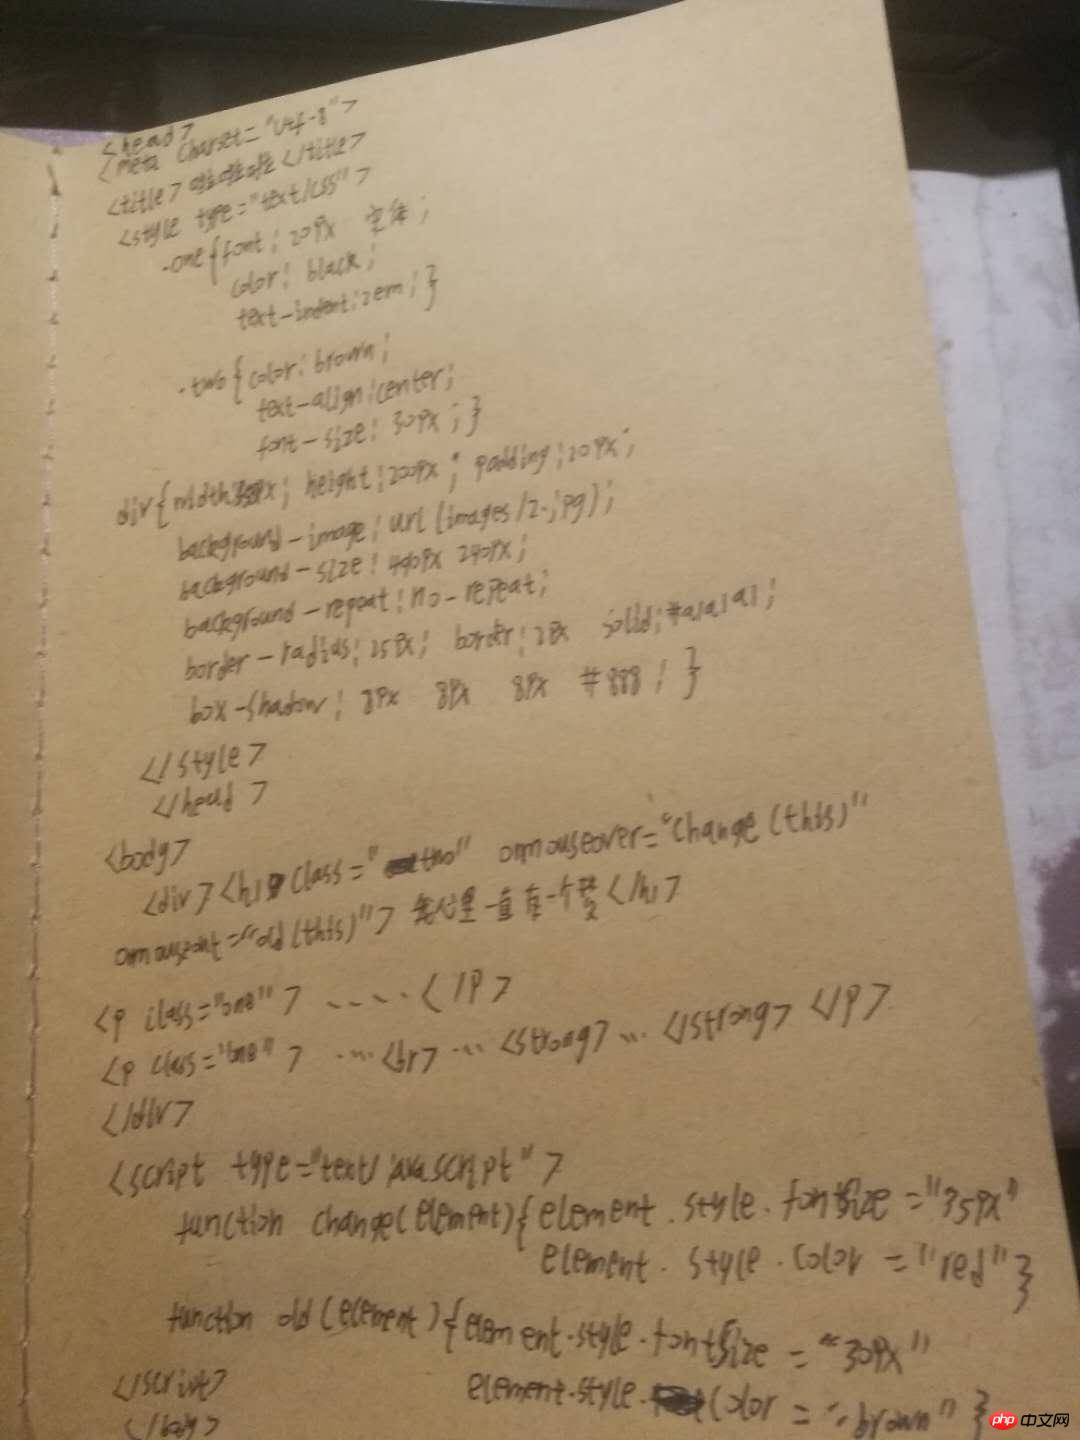 <head>
<meta charset="utf-8">
<title> </title>
<style type="text/css">
.one{font: 20px 宋体;
color: black;
text-indent:2em;}
.two{color: brown;
text-align:center;
font-size: 30px;}
div{width: px; height:200px; padding:20px;
background-image: url(images/2.jpg);
background-size: 440px 240px;
background-repeat:no-repeat;
border-radius:25px; border:2px solid;#a1a1a1;
box-shadow: 8px 8px 8px #888; }
</style>
</head>
<body>
<div><h1 class="two" onmouseover="change(this)"
onmouseout="old(this)"> 我心里一直有一个 </h1>
<p class="one"> .... </p>
<p class="one"> ....<br> ... <strong> ... </strong> </p>
</div>
<script type="text/javascript">
function change(element){element.style.fontSize="35px"
element.style.color="red"}
function old(element){element.style.fontSize="30px"
element.style.color="brown"}
</script>
</body>
php 中文网